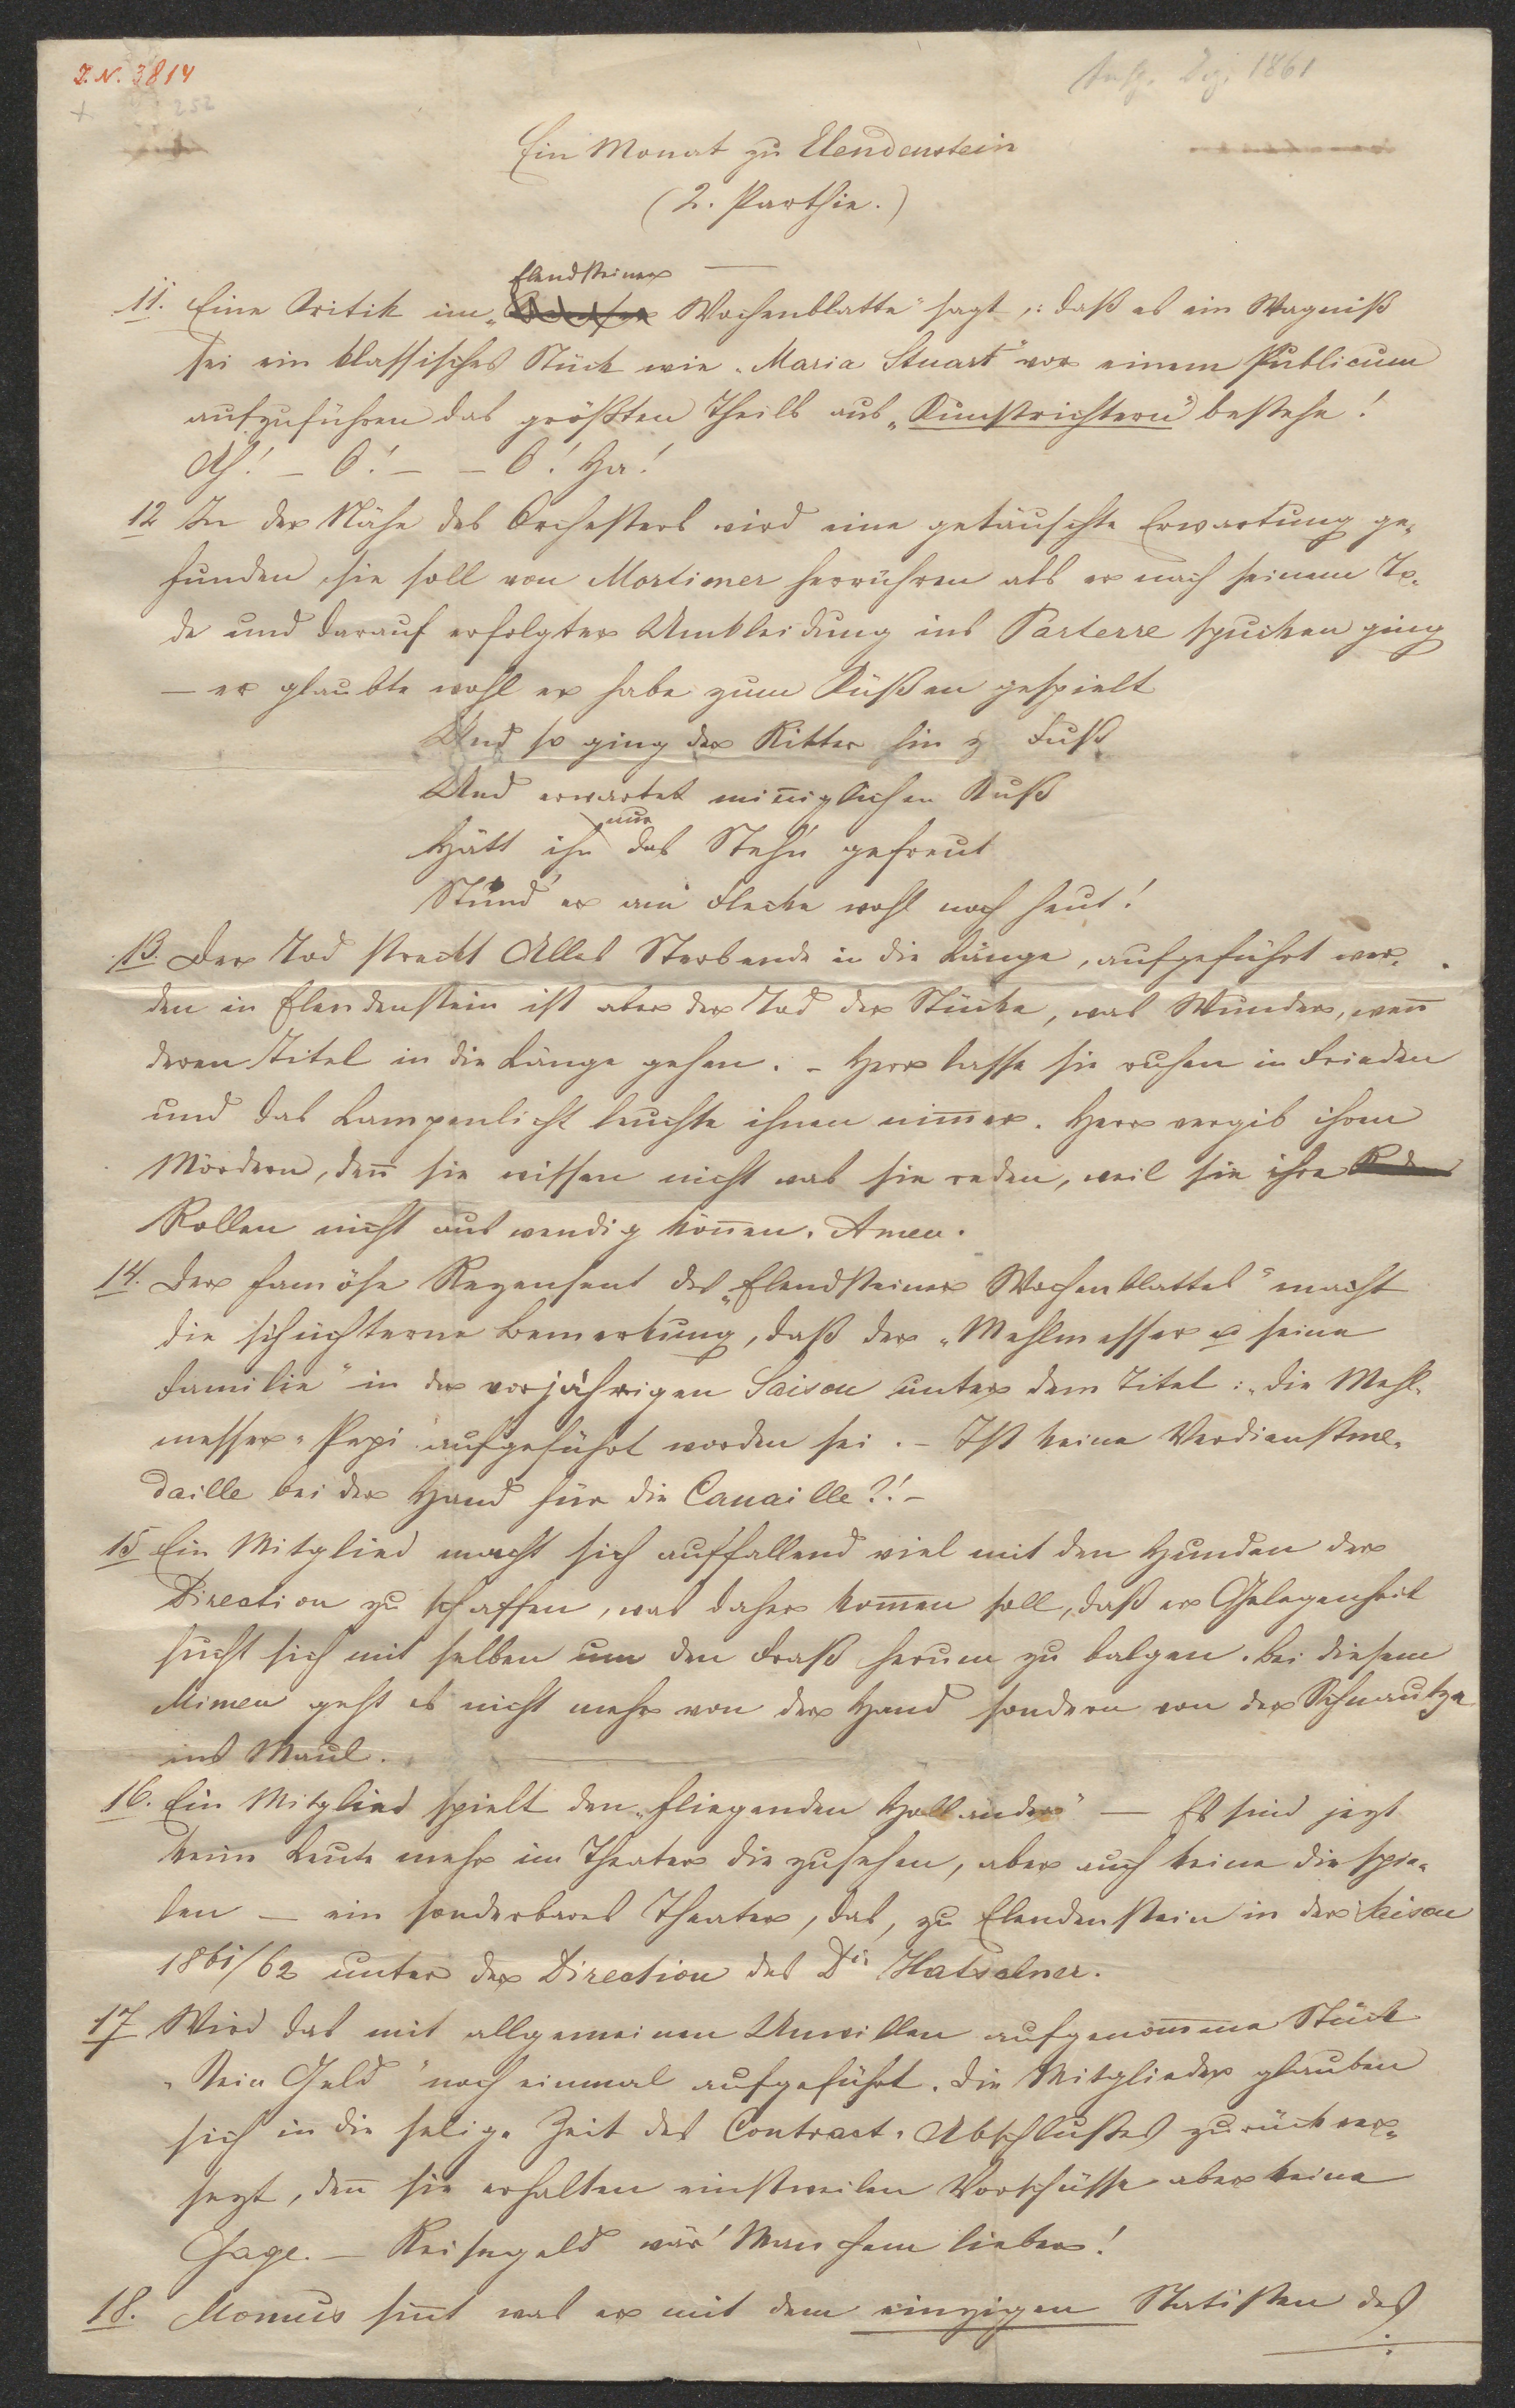 I.N. 3814
252
Dez. 1861
Ein Monat zu Elendenstein
(2. Parthie.)
Elendsteiner
11. Eine Kritik im „ Wochenblatte" sagt,: daß es ein Wagniß
sei ein klassisches Stück wie „Maria Stuart" vor einem Publicum
aufzuführen das größten Theils aus „Kunstrichtern" bestehe!
Ah! – O! – – O! Ha!
12 In der Nähe des Orchesters wird eine getäuschte Erwartung ge„
funden, sie soll von Mortimer herrühren als er nach seinem To„
de und darauf erfolgter Umkleidung ins Parterre spucken ging
– er glaubte wohl er habe zum Küßen gespielt
Und so ging der Ritter hin z Fuß
Und erwartet miniglichen Kuß
nur
Hätt ihn das Steh'n gefreut
Stünd' er am Flecke wohl noch heut!
13. Der Tod streckt Alles Sterbende in die Länge, aufgeführt wer„
den in Elendenstein ist aber der Tod der Stücke, was Wunder, wen̄
deren Titel in die Länge gehen. – Herr lasse sie ruhen in Frieden
und das Lampenlicht leuchte ihnen nim̄er. Herr vergib ihren
Mördern, den̄ sie wissen nicht was sie reden, weil sie ihre
Rollen nicht auswendig kön̄en. Amen.
14. Der famöse Rezensent des „Elendsteiner Wochenblattes" macht
die schüchterne Bemerkung, daß der „Mehlmesser u seine
Familie" in der vorjährigen Saison unter dem Titel: „die Mehl„
messer„Pepi aufgeführt worden sei. – Ist keine Verdienstme„
daille bei der Hand für die Canaille?! –
15 Ein Mitglied macht sich auffallend viel mit den Hunden der
Direction zu schaffen, was daher kom̄en soll, daß er Gelegenheit
sucht sich mit selben um den Fraß herum zu balgen. Bei diesem
Mimen geht es nicht mehr von der Hand sondern von der Schnautze
ins Maul.
16. Ein Mitglied spielt den „fliegenden Holländer" – Es sind jezt
keine Leute mehr im Theater die zusehen, aber auch keine die spie„
len – ein sonderbares Theater, das, zu Elendenstein in der Saison
1861/62 unter der Direction des Dir Hatschner.
17 Wird das mit allgemeinen Unwillen aufgenom̄ne Stück
„Kein Geld" noch einmal aufgeführt. Die Mitglieder glauben
sich in die selige Zeit des Contract„Abschlußes zurück ver„
sezt, den̄ sie erhalten einstweilen Vorschüsse aber keine
Gage. – Reisegeld wär' Manchem lieber!
18. Momus sin̄t was er mit dem einzigen Statisten des